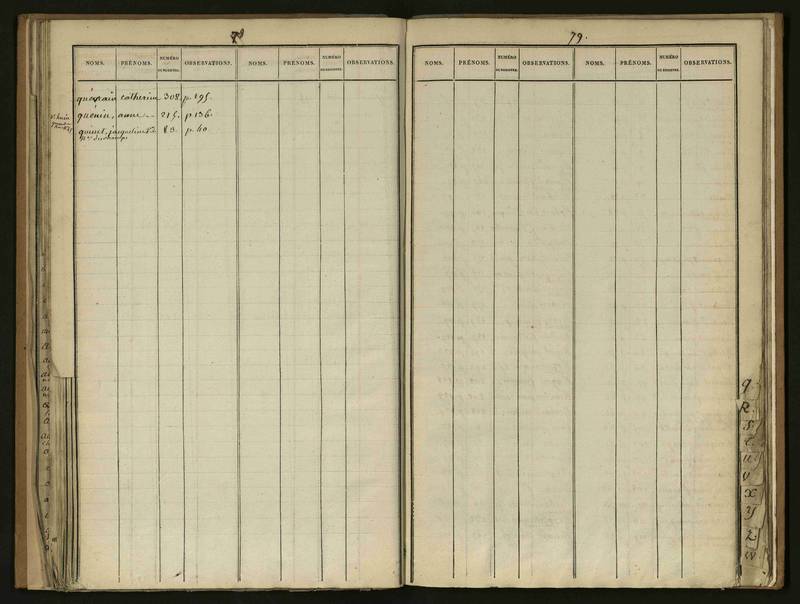 78
NOMS. PRÉNOMS. NUMÉRO DU REGISTRE. OBSERVATIONS. NOMS. PRÉNOMS. NUMÉRO DU REGISTRE. OBSERVATIONS.
catherine 308. p. 195.
quenin, anne 215. p. 136.
quinet, jacqueline 83. p. 40
79.
NOMS. PRÉNOMS. NUMÉRO DU REGISTRE. OBSERVATIONS. NOMS. PRÉNOMS. NUMÉRO DU REGISTRE. OBSERVATIONS.
q
R
S
t
u
v
x
y
z
w